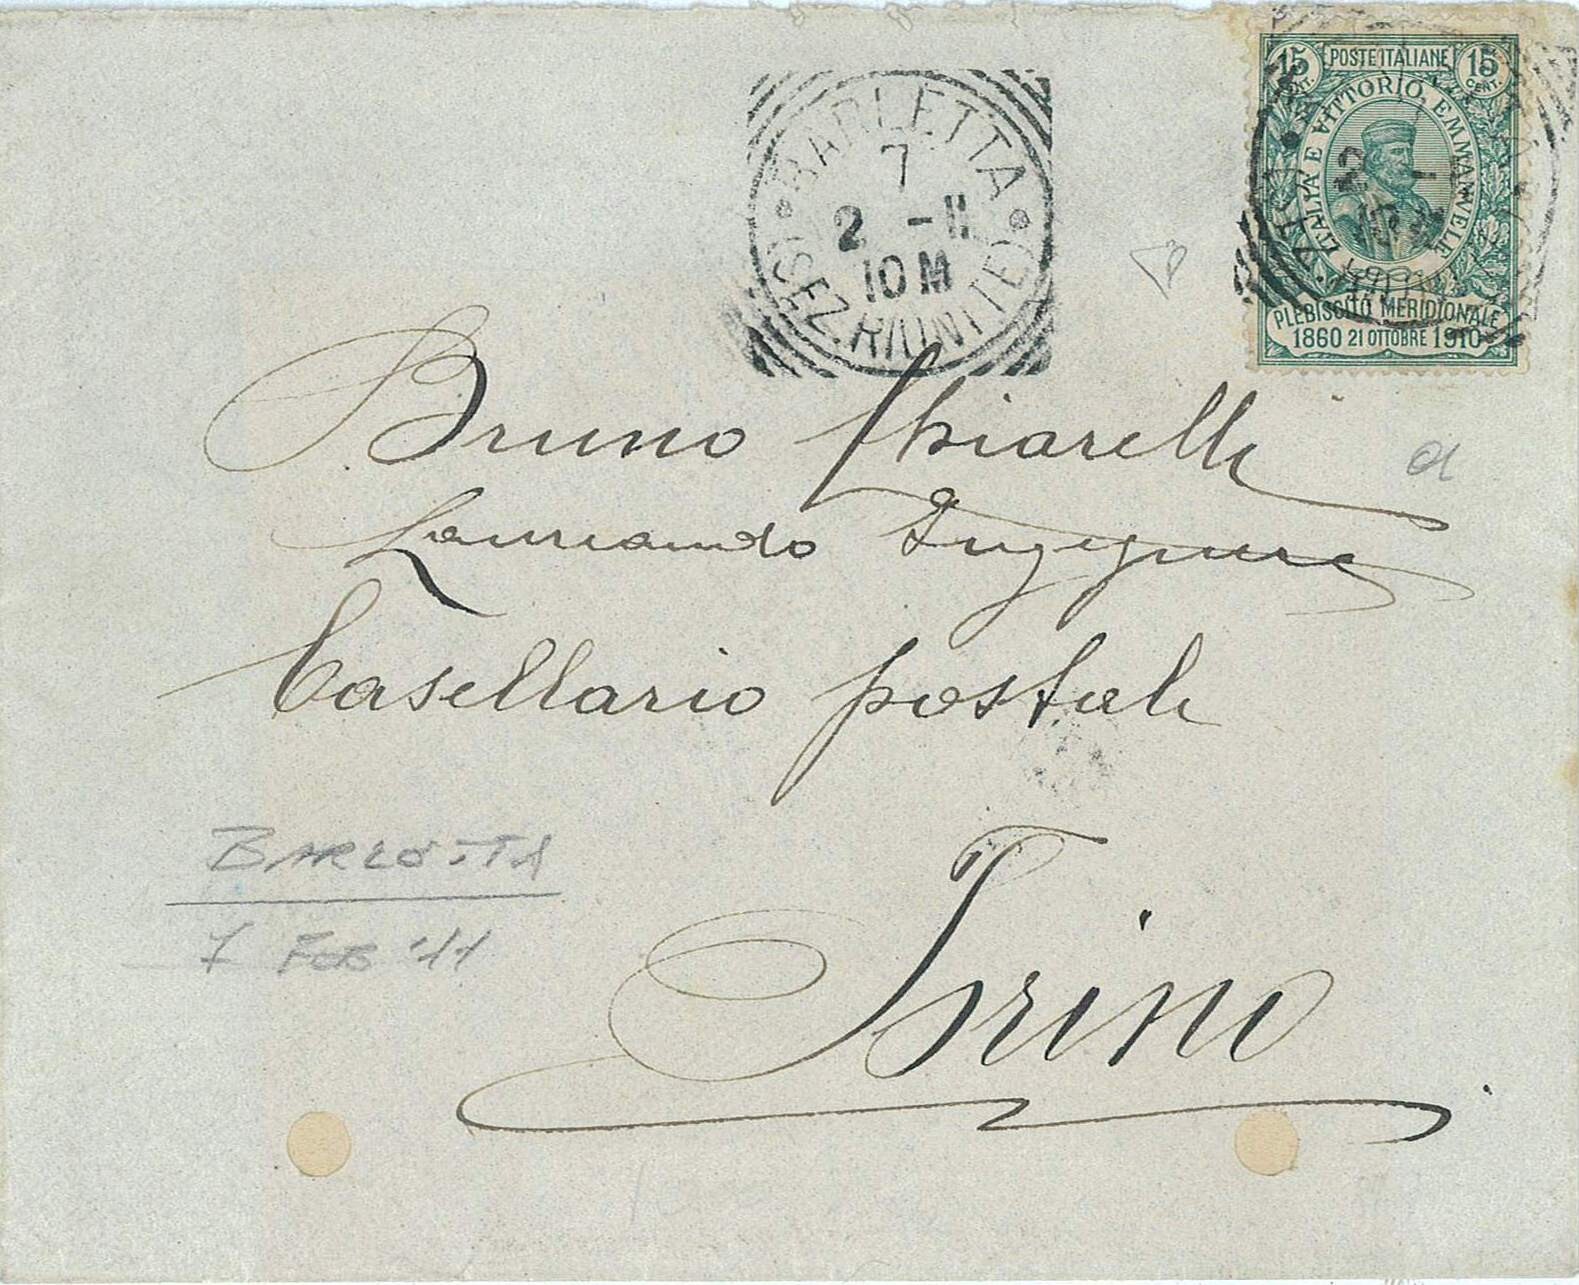 15 POSTE ITALIANE 15
CENT. CENT.
ITALIA E VITTORIO EMMANVELE
PLEBISCITO MERIDIONALE
1860 21 OTTOBRE 1910
BARLETTA
7
2 - 11
10 M
(SEZ. RIUNITE)
Bruno Chiarelli
Laureando Ingegnere
Casellario postale
Torino
BARLETTA
7 FEB '11